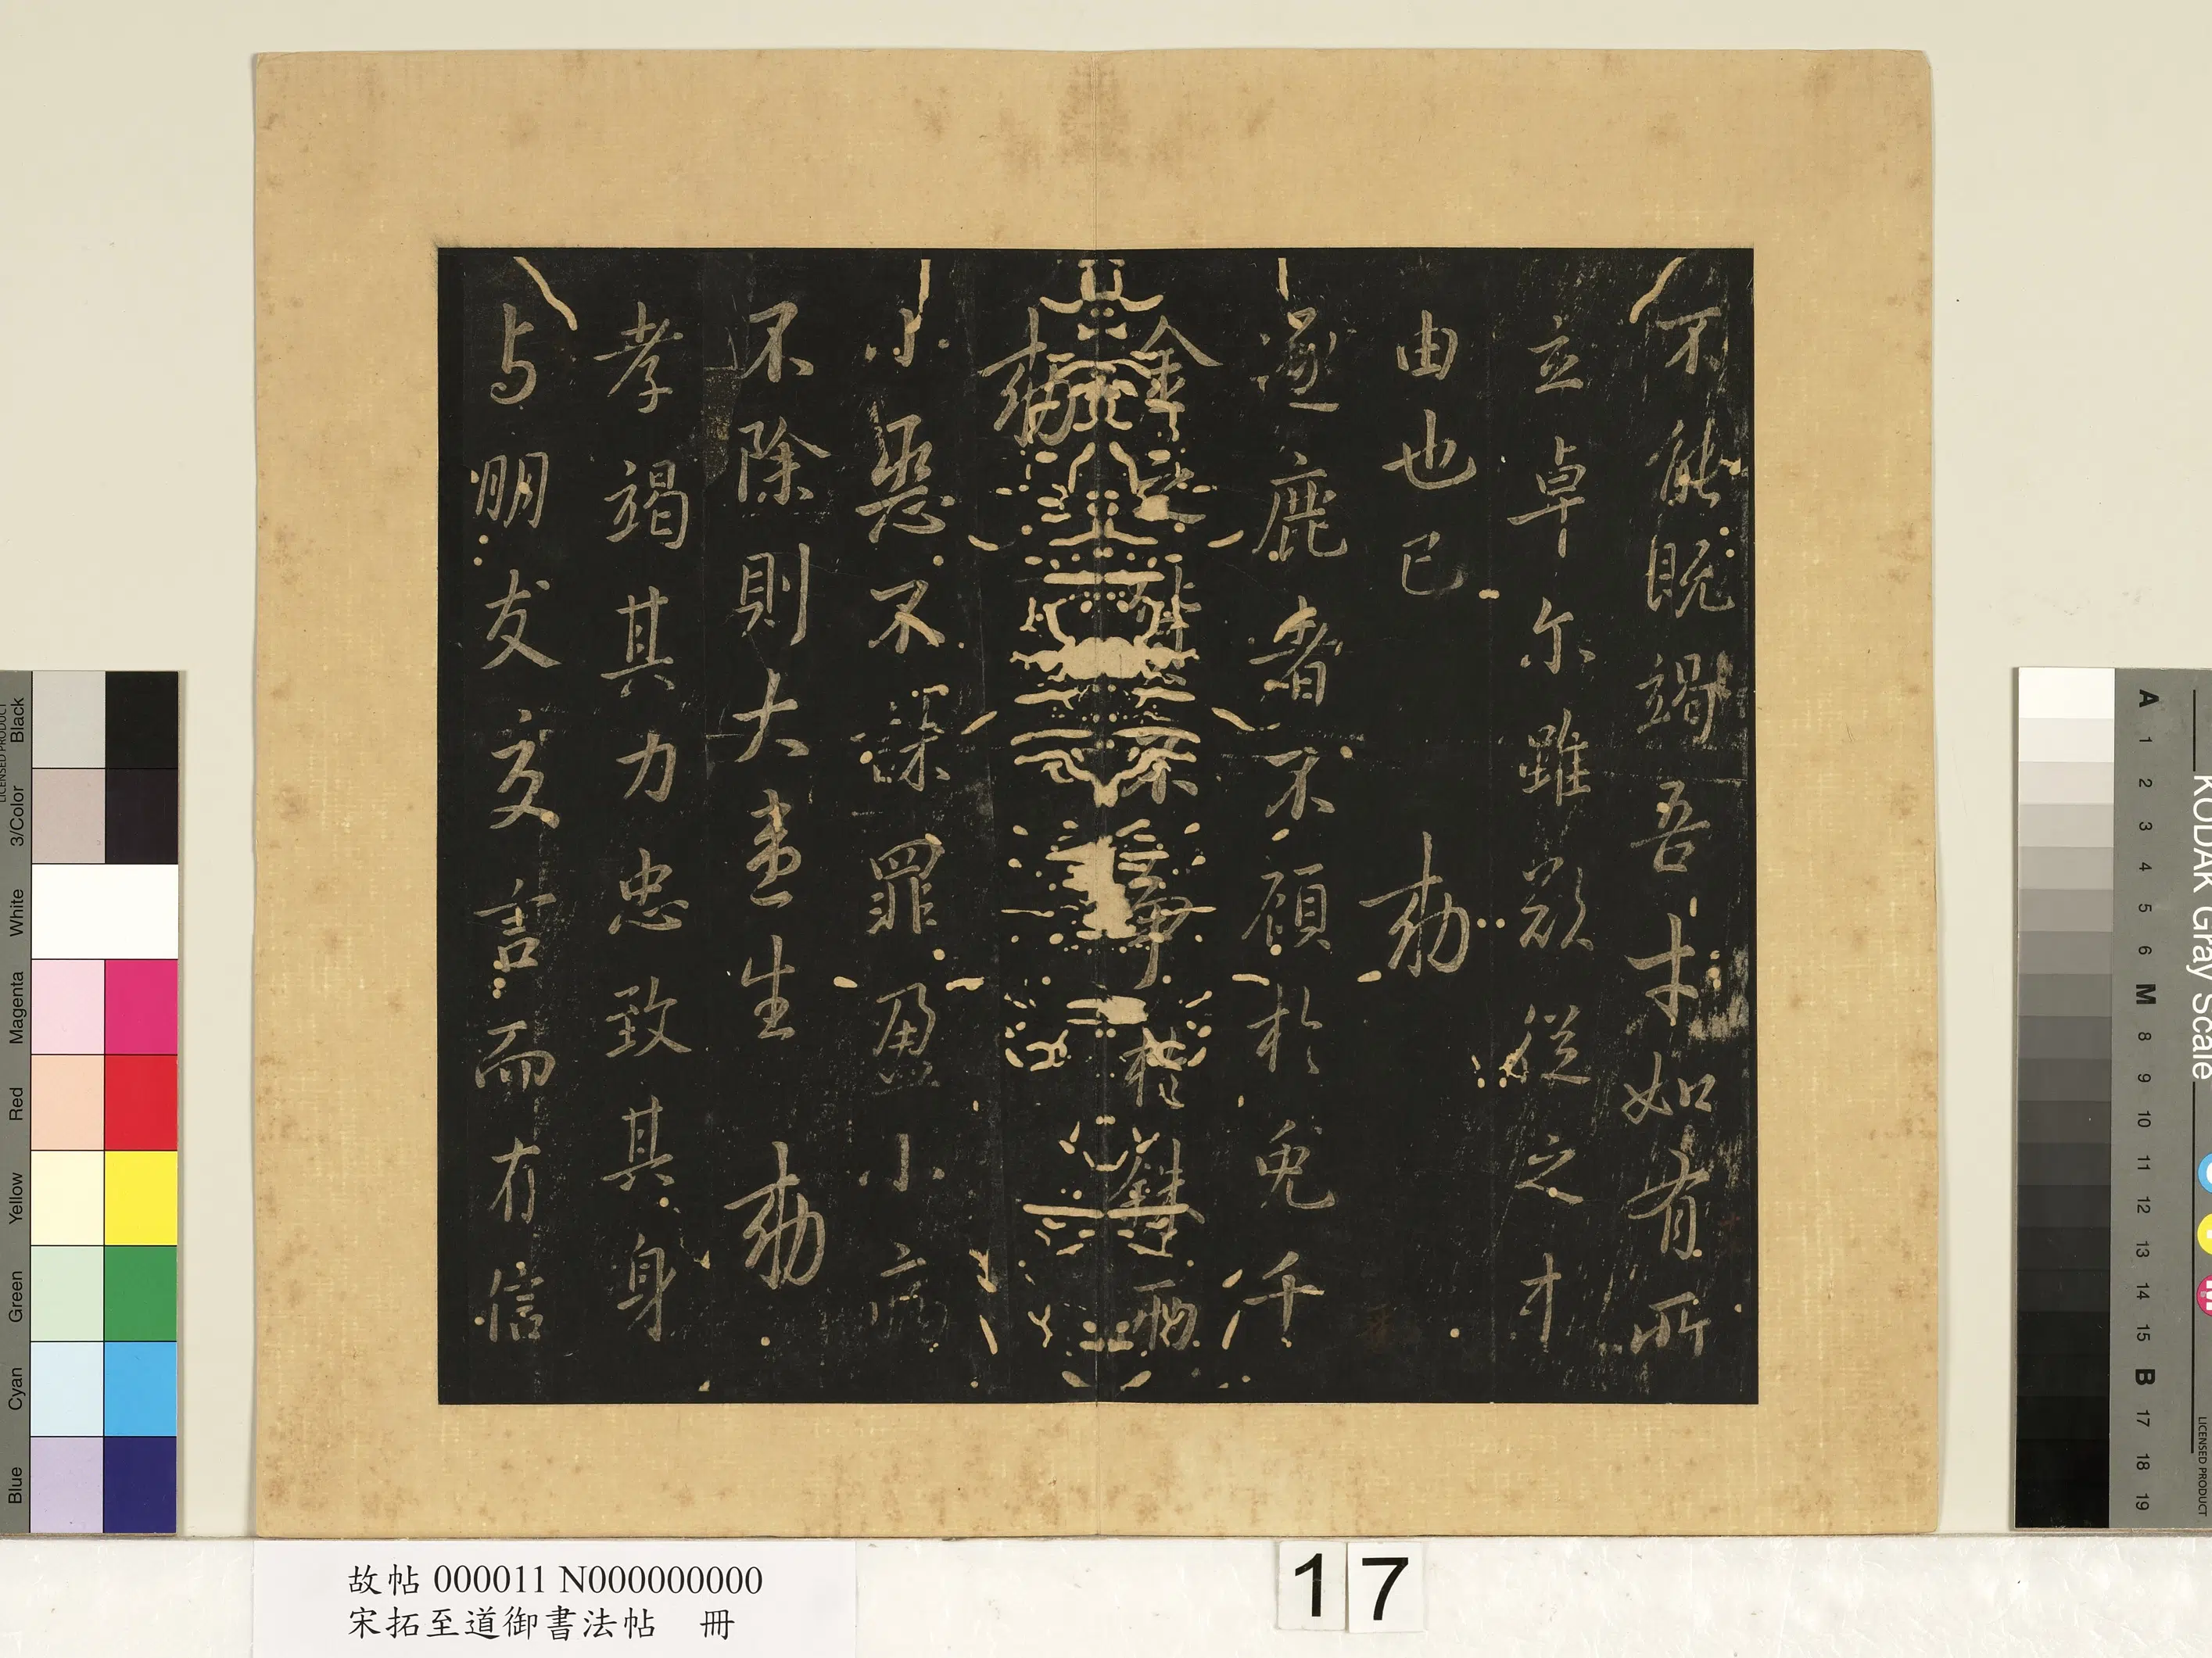 不能既竭吾才如有所
立卓尔雖欲從之末
由也已 勅
逐鹿者不顧於兔千
金之貨不爭於銖兩
勅
小惡不罪盈小病
不除則大患生 勅
孝竭其力忠致其身
与朋友交言而有信
故帖 000011 N000000000
宋拓至道御書法帖 冊
17
Black
3/Color
White
Magenta
Red
Yellow
Green
Cyan
Blue
LICENSED PRODUCT
KODAK Gray Scale
A 1 2 3 4 5 6 M 8 9 10 11 12 13 14 15 B 17 18 19
LICENSED PRODUCT